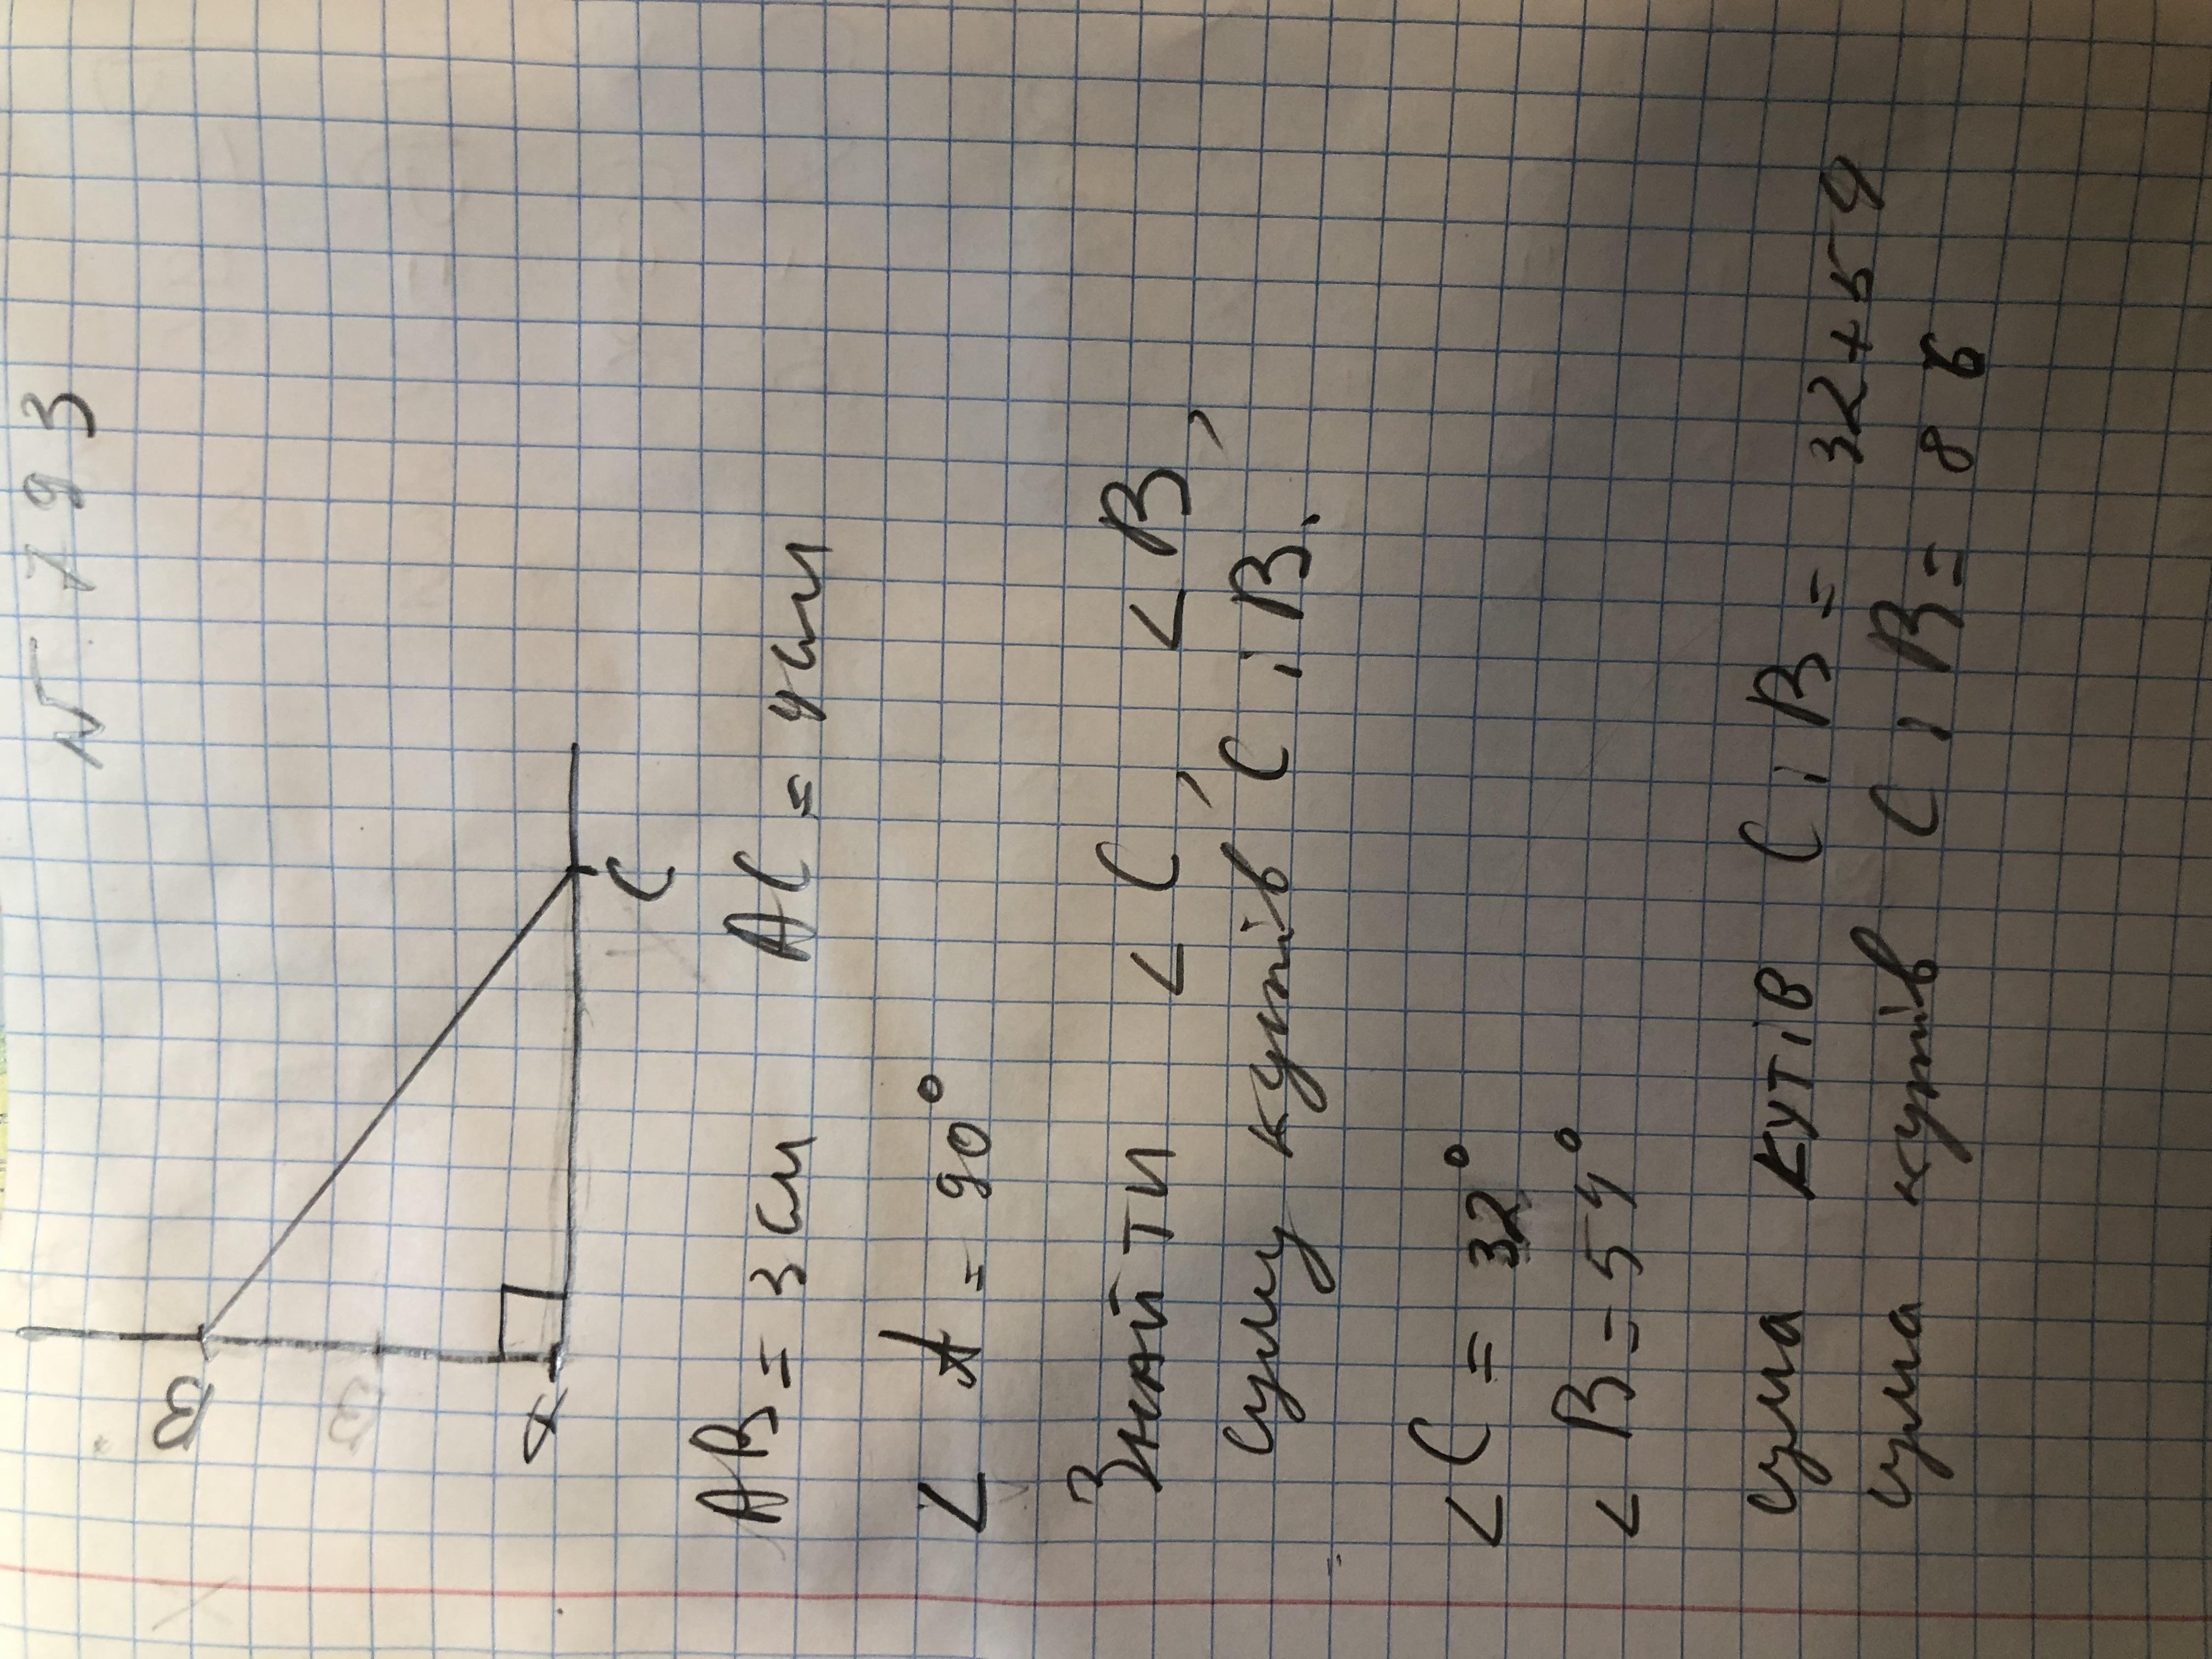 № 793
B
B
A
C
AB = 3 см AC = 4 см
∠ A = 90°
Знайти ∠C, ∠B,
суму кутів C і B.
∠C = 32°
∠B = 54°
сума кутів C і B = 32+54
сума кутів C і B = 86